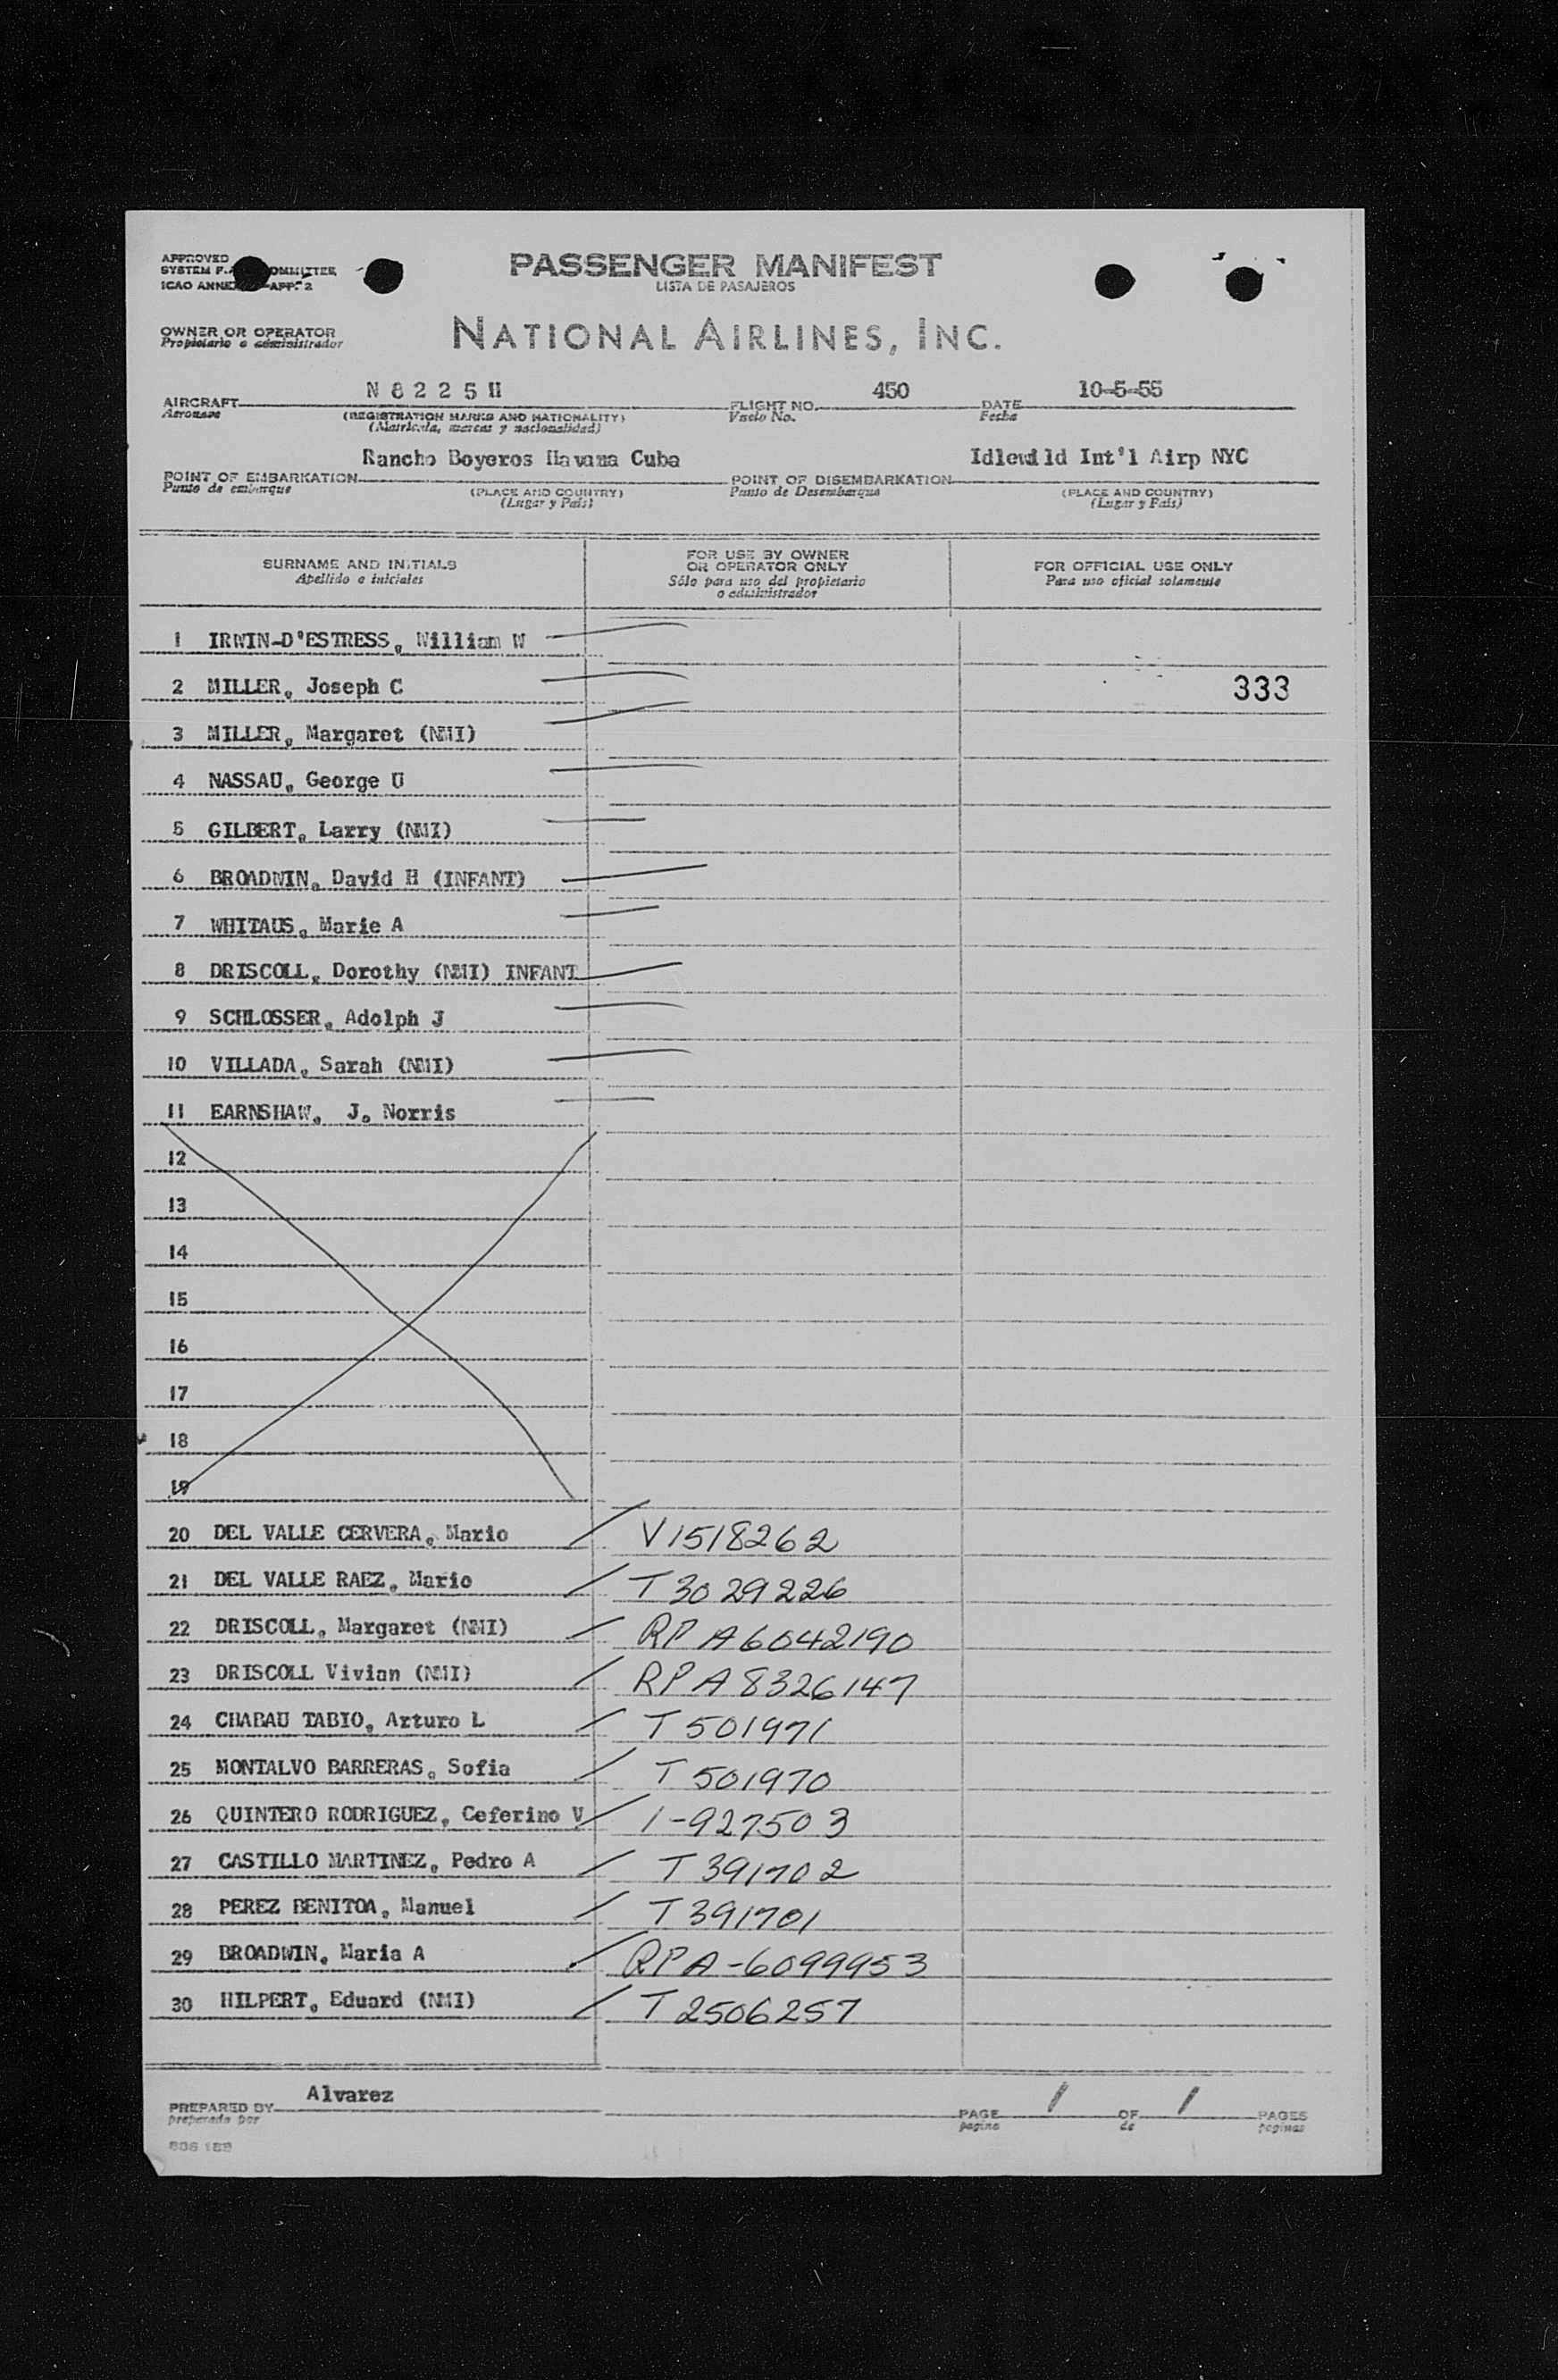 APPROVED
SYSTEM F.A. COMMITTEE
ICAO ANNEX APP. 2
PASSENGER MANIFEST
LISTA DE PASAJEROS
OWNER OR OPERATOR
Propietario o administrador
NATIONAL AIRLINES, INC.
AIRCRAFT N 8 2 2 5 H FLIGHT NO. 450 DATE 10-5-55
Aeronave (REGISTRATION MARKS AND NATIONALITY) Vuelo No. Fecha
(Matrícula, marcas y nacionalidad)
POINT OF EMBARKATION Rancho Boyeros Havana Cuba POINT OF DISEMBARKATION Idlewild Int'l Airp NYC
Punto de embarque (PLACE AND COUNTRY) Punto de Desembarque (PLACE AND COUNTRY)
(Lugar y País) (Lugar y País)
SURNAME AND INITIALS FOR USE BY OWNER OR OPERATOR ONLY FOR OFFICIAL USE ONLY
Apellido e iniciales Sólo para uso del propietario o administrador Para uso oficial solamente
1 IRWIN-D'ESTRESS, William W
2 MILLER, Joseph C 333
3 MILLER, Margaret (NMI)
4 NASSAU, George U
5 GILBERT, Larry (NMI)
6 BROADWIN, David H (INFANT)
7 WHITAUS, Marie A
8 DRISCOLL, Dorothy (NMI) INFANT
9 SCHLOSSER, Adolph J
10 VILLADA, Sarah (NMI)
11 EARNSHAW, J. Norris
12
13
14
15
16
17
18
19
20 DEL VALLE CERVERA, Mario V1518262
21 DEL VALLE RAEZ, Mario T3029226
22 DRISCOLL, Margaret (NMI) RP A6042190
23 DRISCOLL Vivian (NMI) RPA 8326147
24 CHABAU TABIO, Arturo L T501971
25 MONTALVO BARRERAS, Sofia T501970
26 QUINTERO RODRIGUEZ, Ceferino V 1-927503
27 CASTILLO MARTINEZ, Pedro A T391702
28 PEREZ BENITOA, Manuel T391701
29 BROADWIN, Maria A RPA-6099953
30 HILPERT, Eduard (NMI) T2506257
PREPARED BY Alvarez PAGE 1 OF 1 PAGES
preparado por pagina de paginas